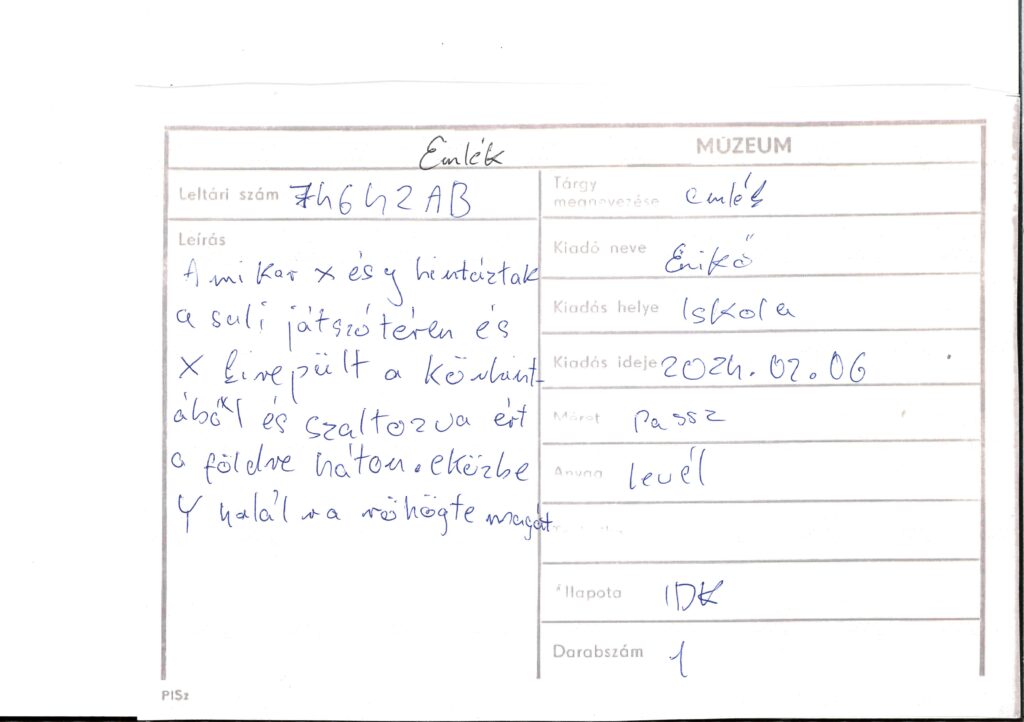 Emlék MÚZEUM
Leltári szám 74642AB
Leírás
Amikor x és y hintáztak
a suli játszótéren és
X kirepült a körhint-
ából és szaltozva ért
a földre háton. eközbe
Y halálra röhögte magát
Tárgy
megnevezése emlék
Kiadó neve Enikő
Kiadás helye Iskola
Kiadás ideje 2024. 02. 06
Méret passz
Anyag levél
Állapota IDK
Darabszám 1
PISz